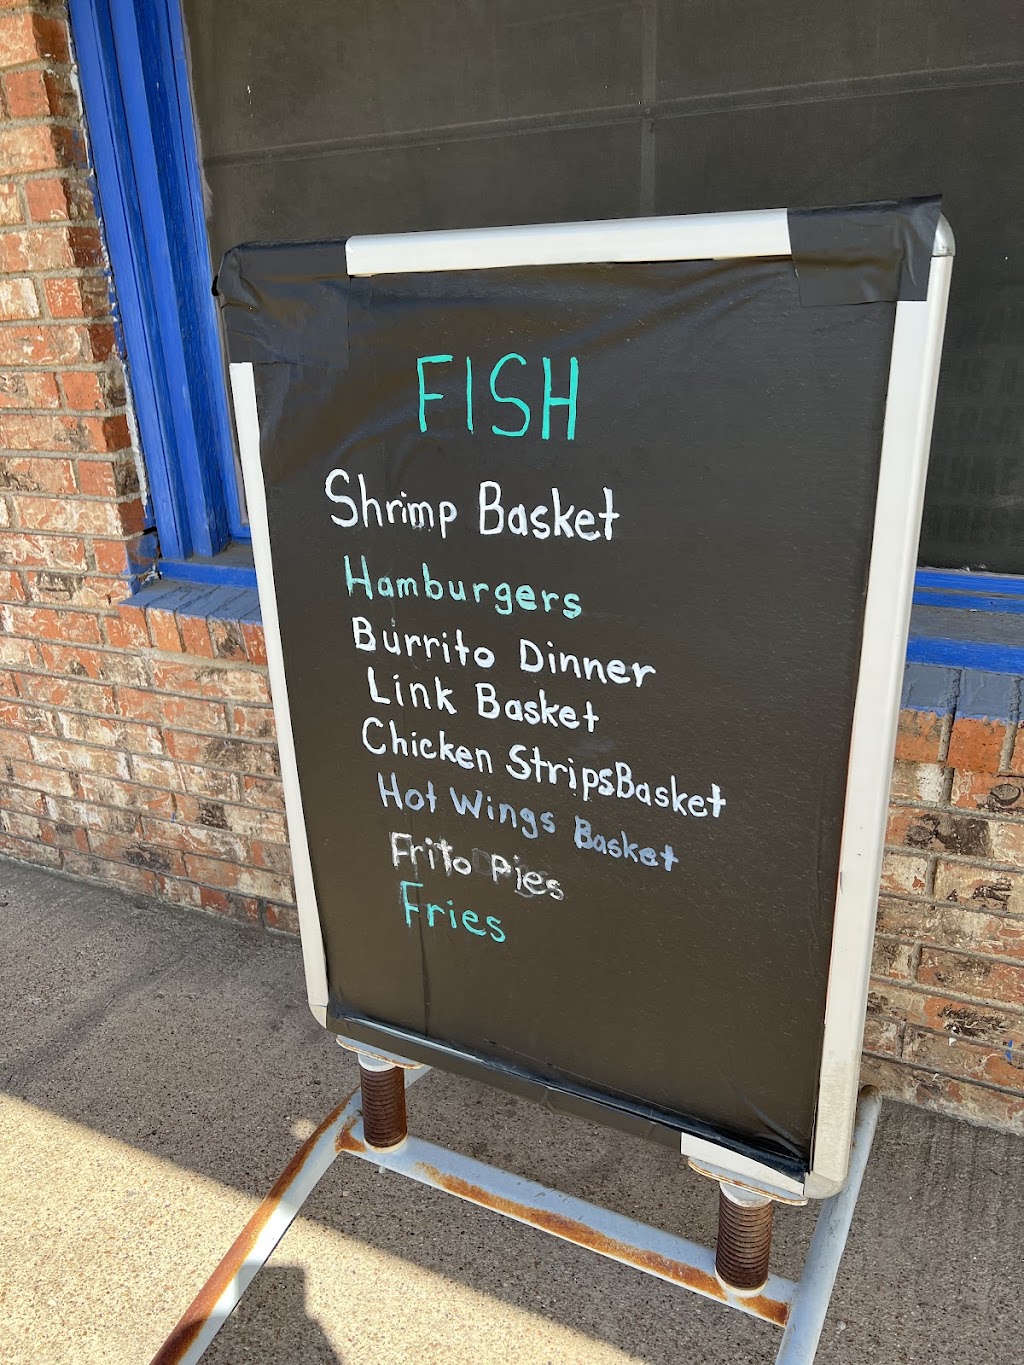 FISH
Shrimp Basket
Hamburgers
Burrito Dinner
Link Basket
Chicken StripsBasket
Hot Wings Basket
Frito Pies
Fries